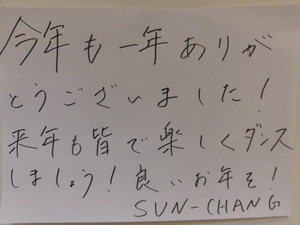 今年も一年ありが
とうございました！
来年も皆で楽しくダンス
しましょう！良いお年を！
SUN-CHANG